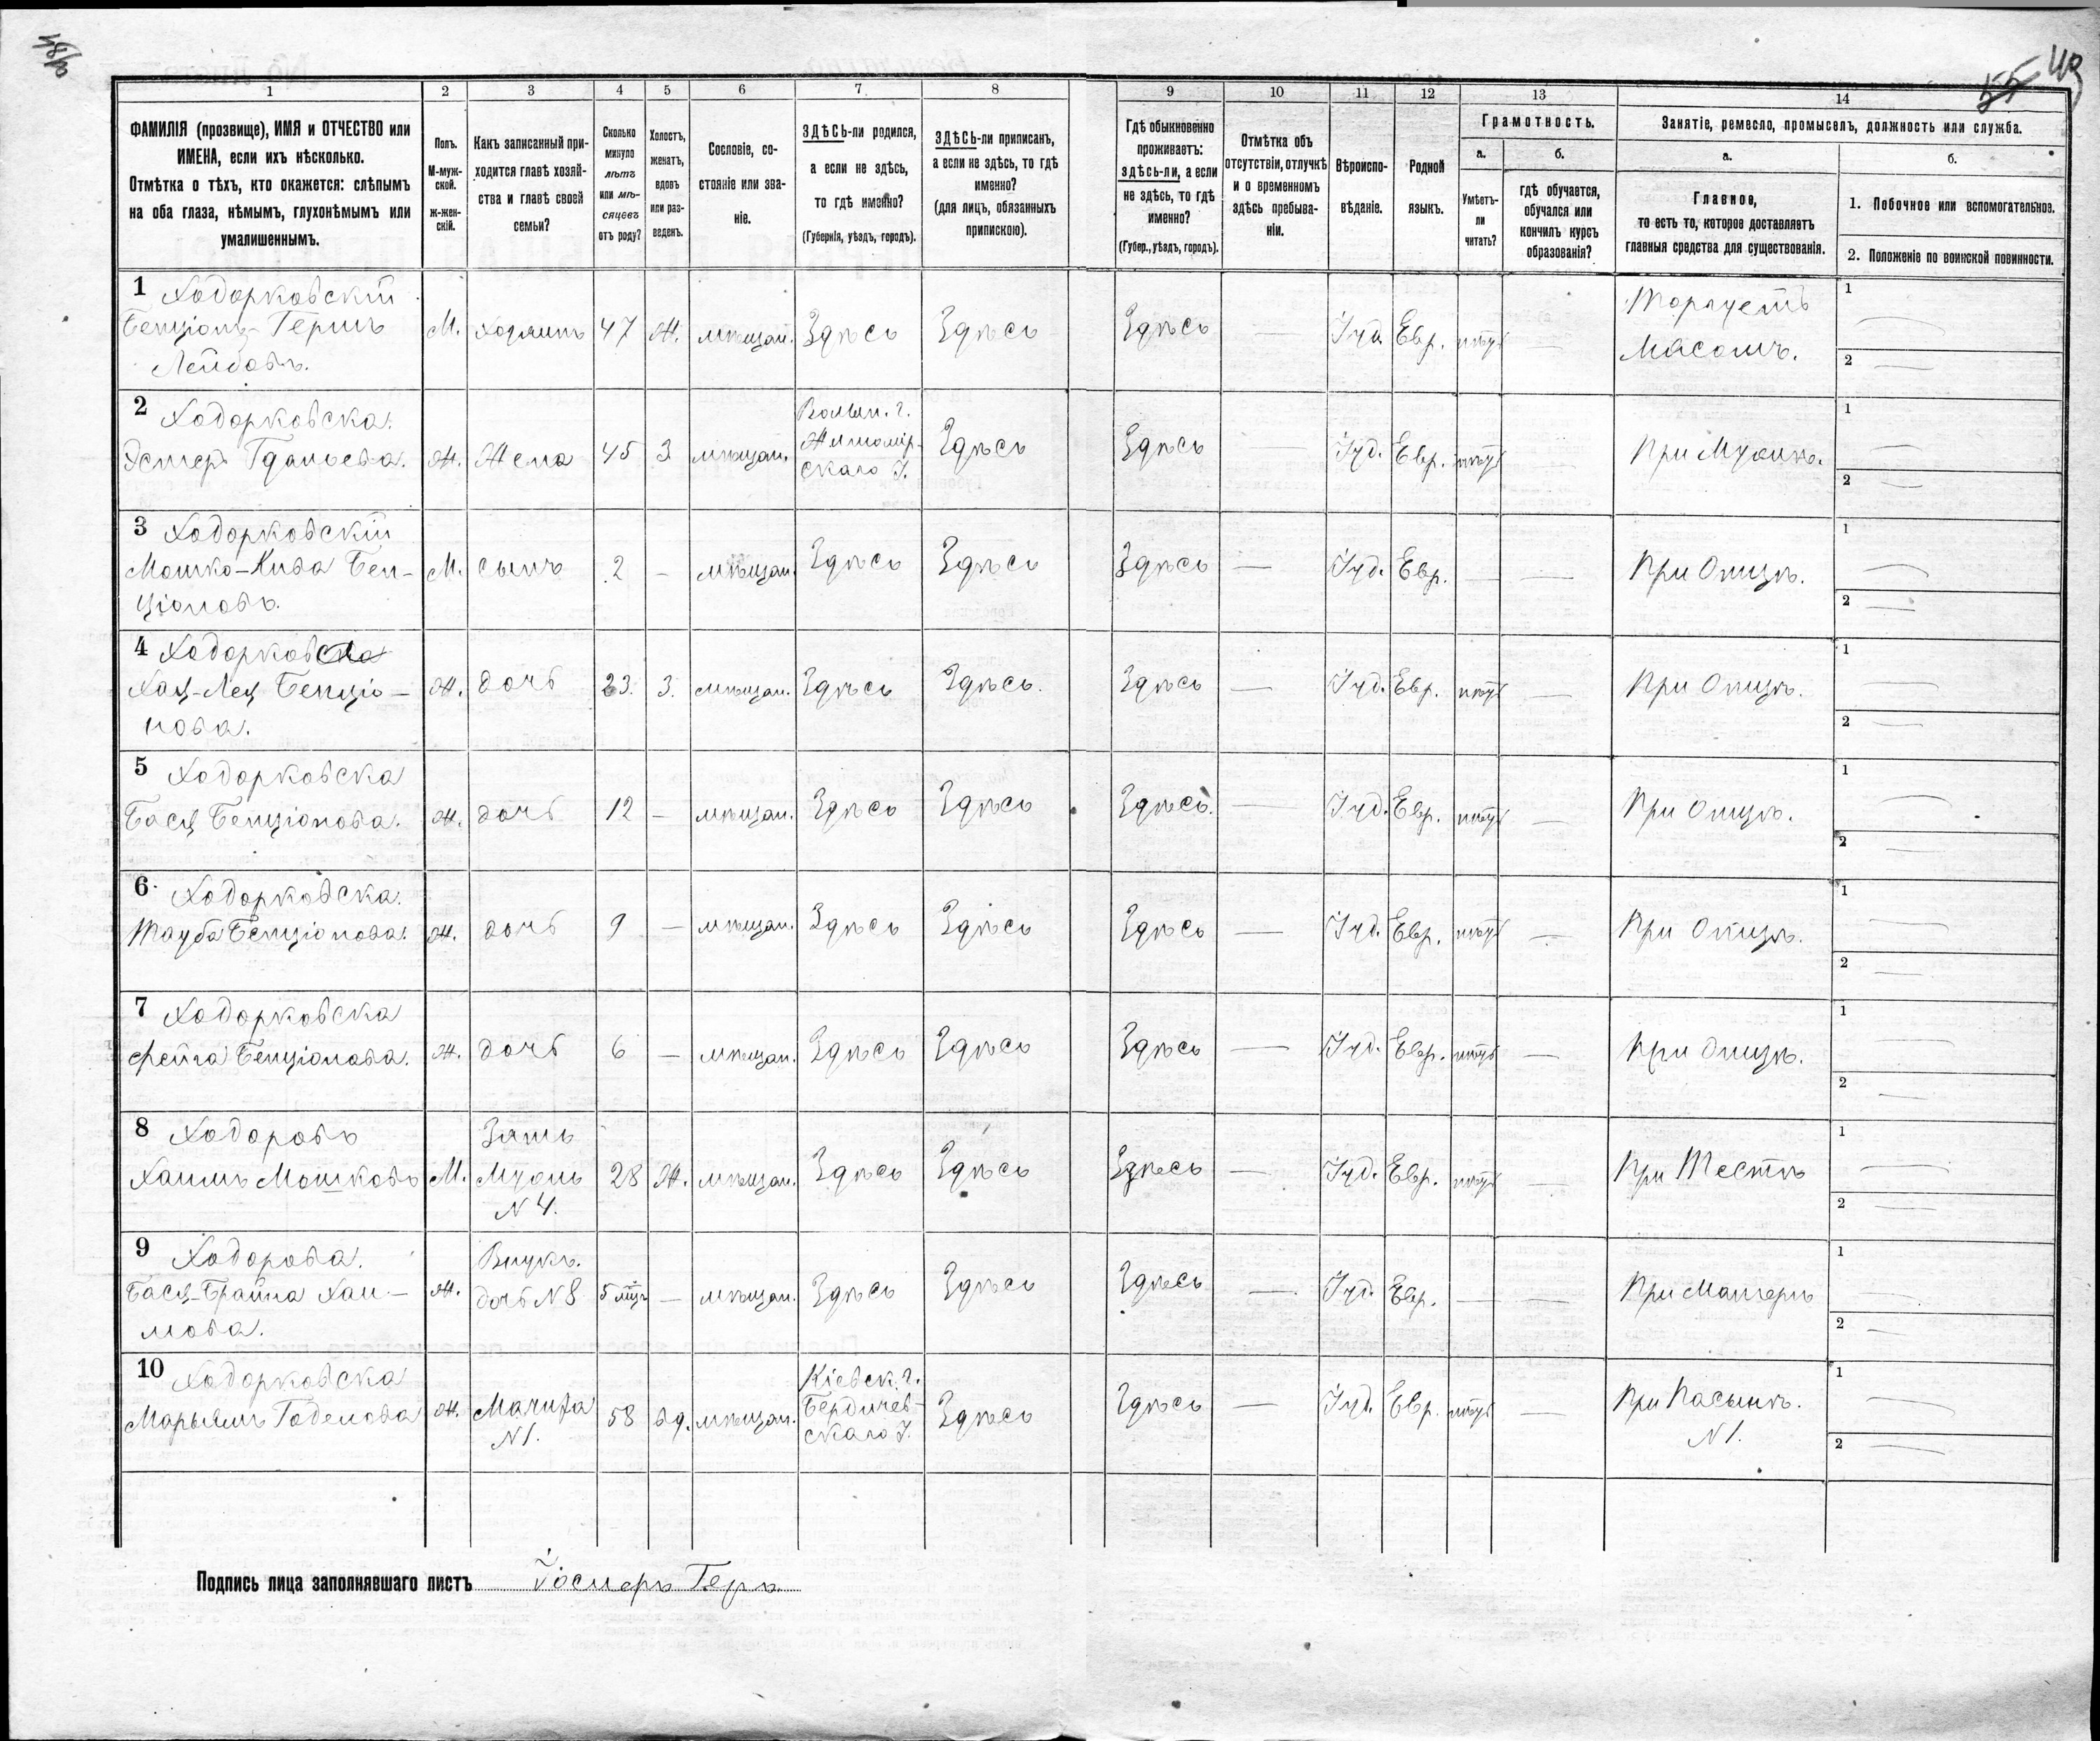 49
1
2
3
4
5
6
7
8
9
10
11
12
13
14
ФАМИЛІЯ (прозвище), ИМЯ и ОТЧЕСТВО или
ИМЕНА, если ихъ нѣсколько.
Отмѣтка о тѣхъ, кто окажется: слѣпымъ
на оба глаза, нѣмымъ, глухонѣмымъ или
умалишеннымъ.
Полъ.
М-муж-
ской.
ж-жен-
скій.
Какъ записанный при-
ходится главѣ хозяй-
ства и главѣ своей
семьи?
Сколько
минуло
лѣтъ
или мѣ-
сяцевъ
отъ роду?
Холостъ,
женатъ,
вдовъ
или раз-
веденъ.
Сословіе, со-
стояніе или зва-
ніе.
ЗДѢСЬ-ли родился,
а если не здѣсь,
то гдѣ именно?
(Губернія, уѣздъ, городъ).
ЗДѢСЬ-ли приписанъ,
а если не здѣсь, то гдѣ
именно?
(для лицъ, обязанныхъ
припискою).
Гдѣ обыкновенно
проживаетъ:
здѣсь-ли, а если
не здѣсь, то гдѣ
именно?
(Губер., уѣздъ, городъ).
Отмѣтка объ
отсутствіи, отлучкѣ
и о временномъ
здѣсь пребыва-
ніи.
Вѣроиспо-
вѣданіе.
Родной
языкъ.
Грамотность.
а.
Умѣетъ-
ли
читать?
б.
гдѣ обучается,
обучался или
кончилъ курсъ
образованія?
Занятіе, ремесло, промыселъ, должность или служба.
а.
Главное,
то есть то, которое доставляетъ
главныя средства для существованія.
б.
1. Побочное или вспомогательное.
2. Положеніе по воинской повинности.
1 Ходорковскій
Бенціонъ-Гершъ
Лейбовъ.
М. Хозяинъ 47 Ж. мѣщан. Здѣсь Здѣсь Здѣсь — Іуд. Евр. нѣтъ —
Торгуетъ
Мясомъ.
1 —
2 —
2 Ходорковска.
Эстеръ Гдальева.
Ж. Жена 45 З мѣщан.
Волын. г.
Житомір-
скаго У.
Здѣсь Здѣсь — Іуд. Евр. нѣтъ — При Мужѣ.
1 —
2 —
3 Ходорковскій
Мошко-Кива Бен-
ціоновъ.
М. сынъ 2 — мѣщан. Здѣсь Здѣсь Здѣсь — Іуд. Евр. — — При Отцѣ.
1 —
2 —
4 Ходорковска
Хая-Лея Бенціо-
нова.
Ж. дочь 23. З. мѣщан. Здѣсь Здѣсь. Здѣсь — Іуд. Евр. нѣтъ — При Отцѣ.
1 —
2 —
5 Ходорковска
Бася Бенціонова.
Ж. дочь 12 — мѣщан. Здѣсь Здѣсь Здѣсь. — Іуд. Евр. нѣтъ — При Отцѣ.
1 —
2 —
6 Ходорковска.
Тауба Бенціонова.
Ж. дочь 9 — мѣщан. Здѣсь Здѣсь Здѣсь — Іуд. Евр. нѣтъ — При Отцѣ.
1 —
2 —
7 Ходорковска
Фейга Бенціонова.
Ж. дочь 6 — мѣщан. Здѣсь Здѣсь Здѣсь — Іуд. Евр. нѣтъ — При Отцѣ.
1 —
2 —
8 Ходоровъ
Хаимъ Мошковъ
М.
Зять
Мужъ
N 4.
28 Ж. мѣщан. Здѣсь Здѣсь Здѣсь — Іуд. Евр. нѣтъ — При Тестѣ
1 —
2 —
9 Ходорова.
Бася-Брайна Хаи-
мова.
Ж.
Внук.
дочь N 8
5 мѣц. — мѣщан. Здѣсь Здѣсь Здѣсь — Іуд. Евр. — — При Матерѣ
1 —
2 —
10 Ходорковска
Марьямъ Годелова
Ж.
Мачиха
N 1.
58 вд. мѣщан.
Кіевск. г.
Бердичев-
скаго У.
Здѣсь Здѣсь — Іуд. Евр. нѣтъ —
При Пасынкѣ.
N 1.
1 —
2 —
Подпись лица заполнявшаго листъ